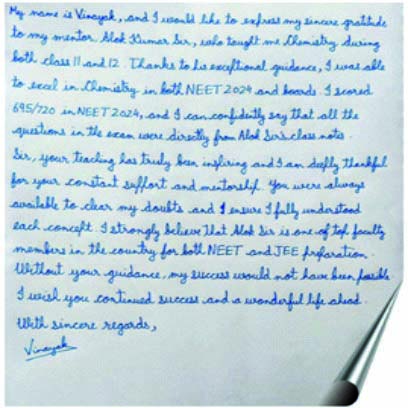 My name is Vinayak, and I would like to express my sincere gratitude
to my mentor Alok Kumar Sir, who taught me Chemistry during
both class 11 and 12. Thanks to his exceptional guidance, I was able
to excel in Chemistry in both NEET 2024 and boards. I scored
695/720 in NEET 2024, and I can confidently say that all the
questions in the exam were directly from Alok Sir's class notes.
Sir, your teaching has truly been inspiring and I am deeply thankful
for your constant support and mentorship. You were always
available to clear my doubts and I ensure I fully understood
each concept. I strongly believe that Alok Sir is one of top faculty
members in the country for both NEET and JEE preparation.
Without your guidance, my success would not have been possible.
I wish you continued success and a wonderful life ahead.
With sincere regards,
Vinayak